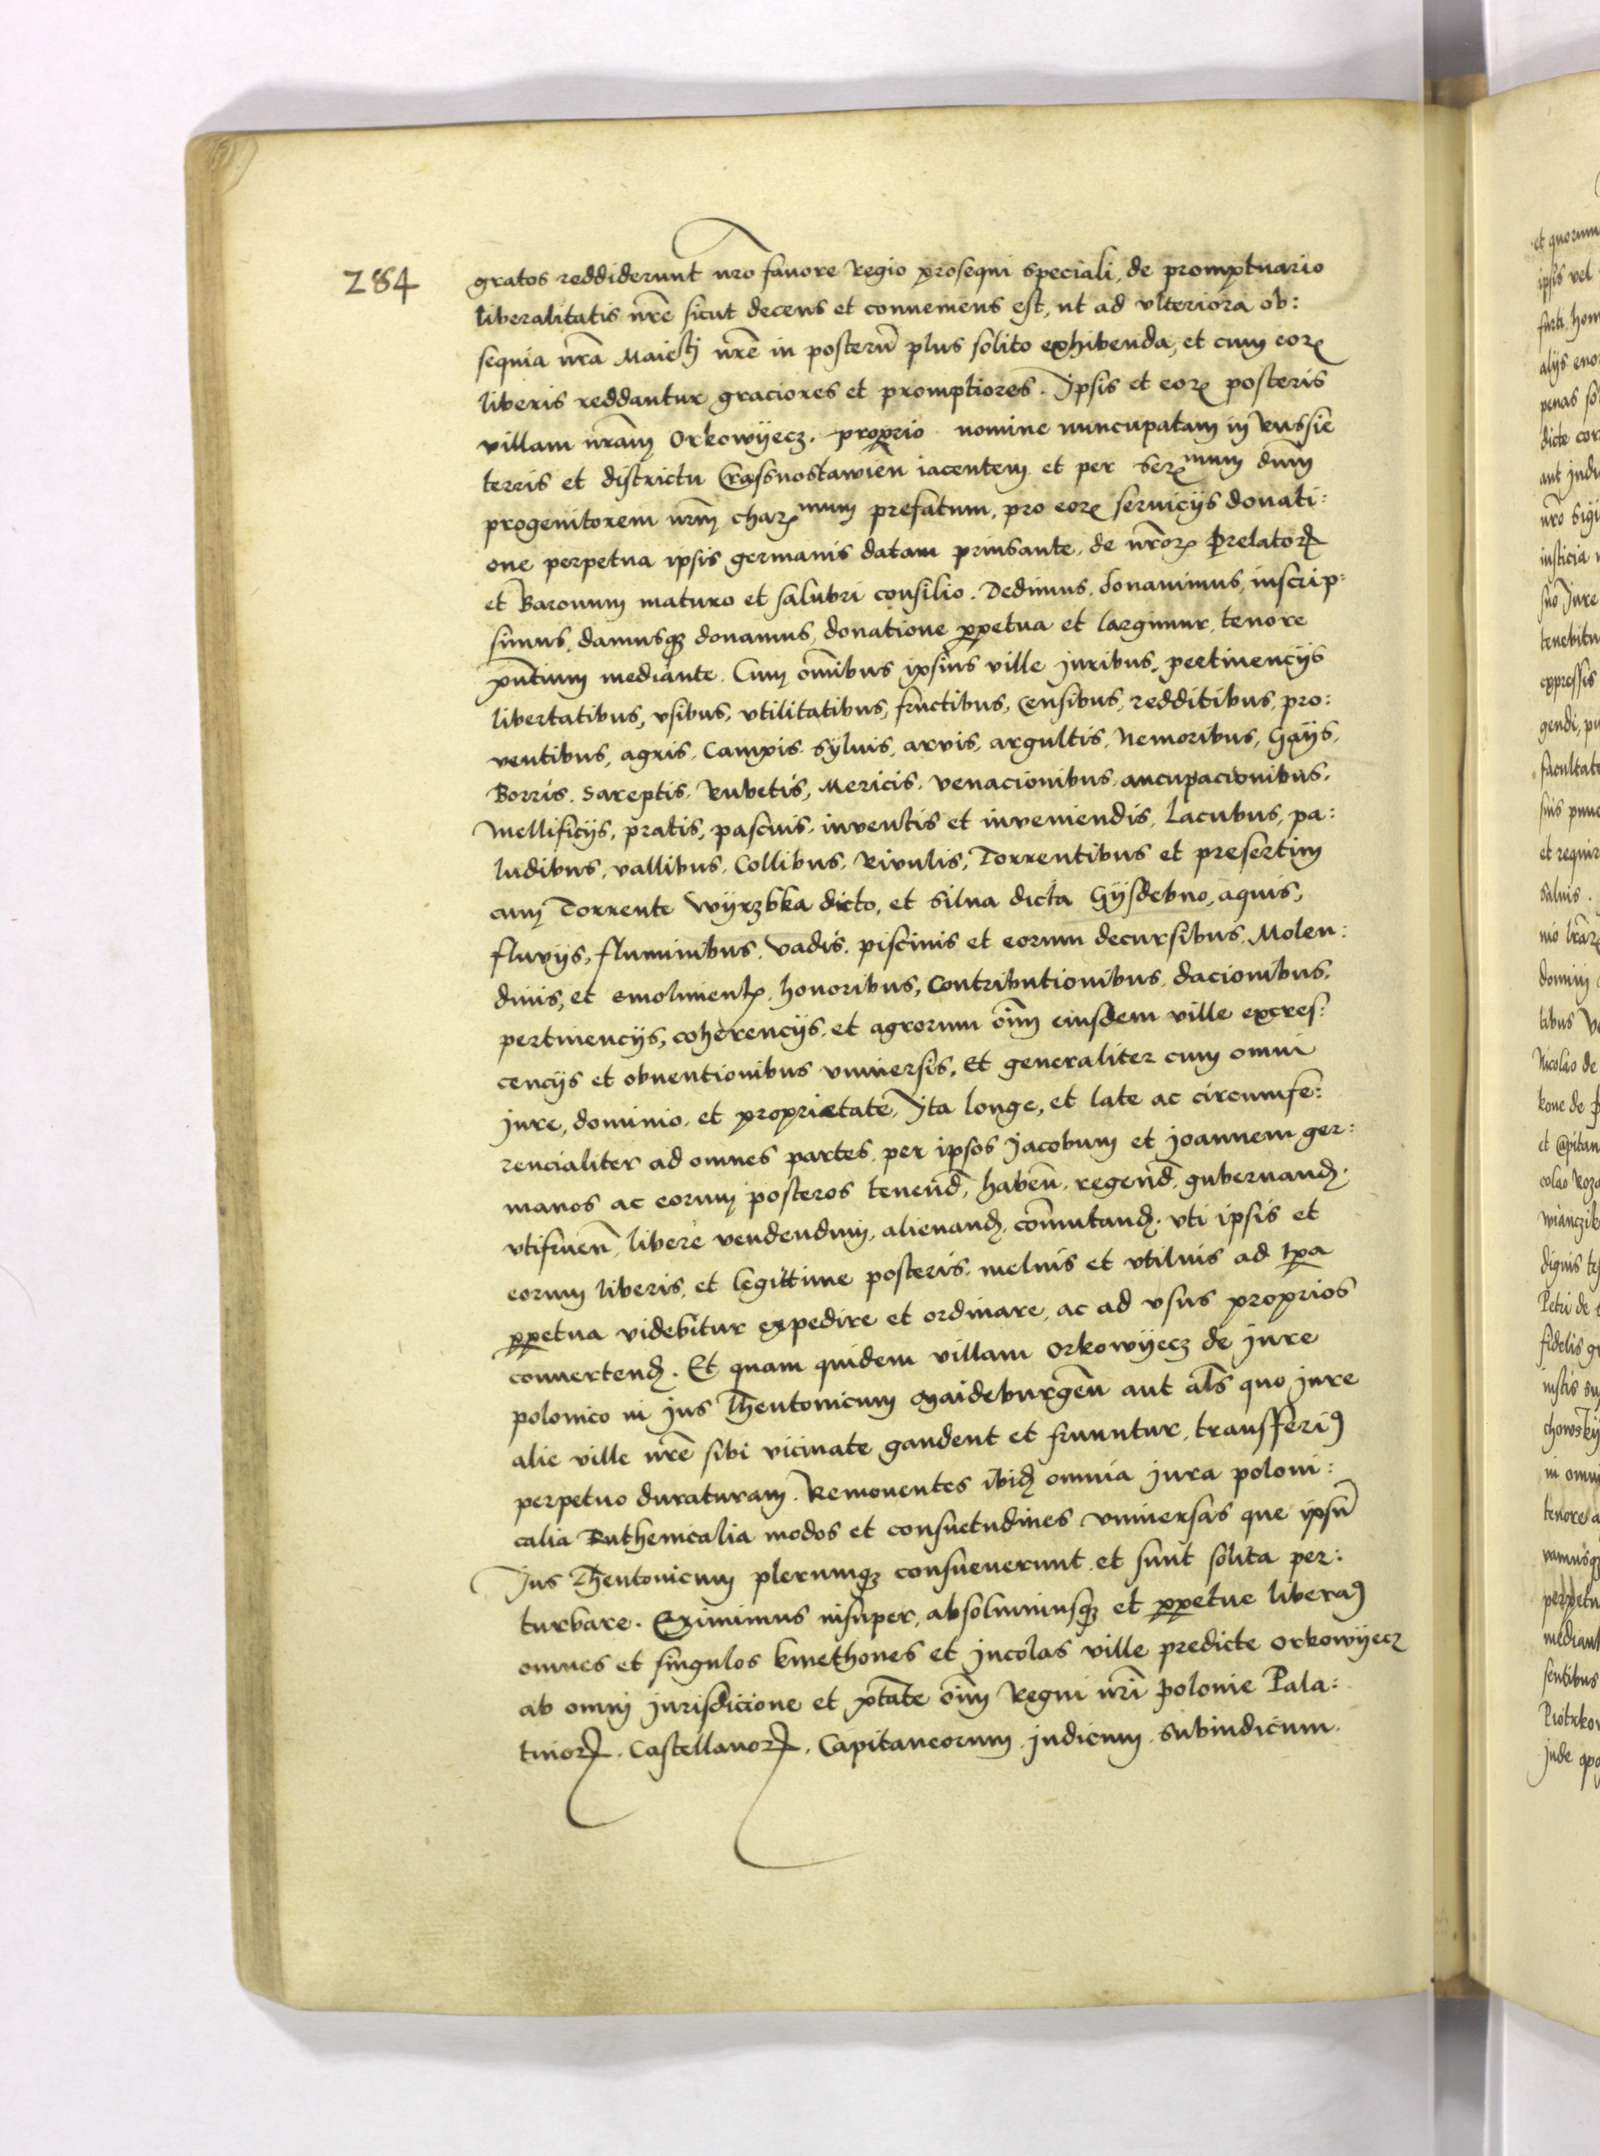 284
gratos reddiderunt nro favore Regio prosequi speciali, de promptuario
liberalitatis nre sicut decens et conveniens est, ut ad ulteriora ob:
sequia nra Maiesti nre in posterū plus solito exhibenda, et cum eorꝫ
liberis reddantur graciores et promptiores. Ipsis et eorꝫ posteris
villam nram Orkowyecz. proprio nomine nuncupatam in Russie
terris et districtu Crassnostawien̄ iacentem et per Serꝫmum dnm
progenitorem nrm charꝫmum prefatum, pro eorꝫ serviciis donati:
one perpetua ipsis germanis datam priusante, de nrorꝫ Prelatorꝝ
et Baronum maturo et salubri consilio. Dedimus, donavimus, inscrip:
simus, damusqꝫ donamus, donatione ppetua et largimur, tenore
pntium mediante. Cum omibus ipsius ville juribus, pertinencijs
libertatibus, usibus, utilitatibus, fructibus, Censibus, redditibus, pro:
ventibus, agris, Campis, Sylvis, arvis, argultis, Nemoribus, Gayis,
Borris, Sareptis, Rubetis, Mericis, venacionibus, aucupacionibus,
mellificijs, pratis, pascuis, inventis et inveniendis, Lacubus, pa:
ludibus, vallibus, Collibus, Rivulis, Torrentibus et presertim
cum Torrente Wyrzbka dicto, et Silva dicta Gysdebno, aquis,
fluvijs, fluminibus, vadis, piscinis et eorum decursibus, Molen:
dinis, et emolimentꝫ, honoribus, Contributionibus, dacionibus,
pertinencijs, coherencijs, et agrorum oīm eiusdem ville excres:
cencijs et obventionibus universis, Et generaliter cum omni
jure, dominio, et proprietate, Ita longe, et late ac circumfe:
rencialiter ad omnes partes, per ipsos Jacobum et Joannem ger:
manos ac eorum posteros tenend, haben̄, regend, gubernand,
utifruen̄, libere vendendum, alienand, comutand, uti ipsis et
eorum liberis, et legittime posteris, melius et utilius ad tpa
ppetua videbitur expedire et ordinare, ac ad usus proprios
convertend. Et quam quidem villam Orkowyecz de jure
polonico in jus Theutonicum Maideburgen̄ aut als quo jure
alie ville nre sibi vicinate gaudent et fruuntur, transferimꝰ
perpetuo duraturam. Removentes ibid omnia jura poloni:
calia Ruthenicalia modos et consuetudines universas que ipsū
Jus Theutonicum plerumqꝫ consueverunt et sunt solita per:
turbare. Eximimus insuper, absolvimusqꝫ et ppetue liberamꝰ
omnes et singulos kmethones et Incolas ville predicte Orkowyecz
ab omni jurisdicione et ptate oīm Regni nri polonie Pala:
tinorꝝ, Castellanorꝝ, Capitaneorum, Judicum, Subiudicum.